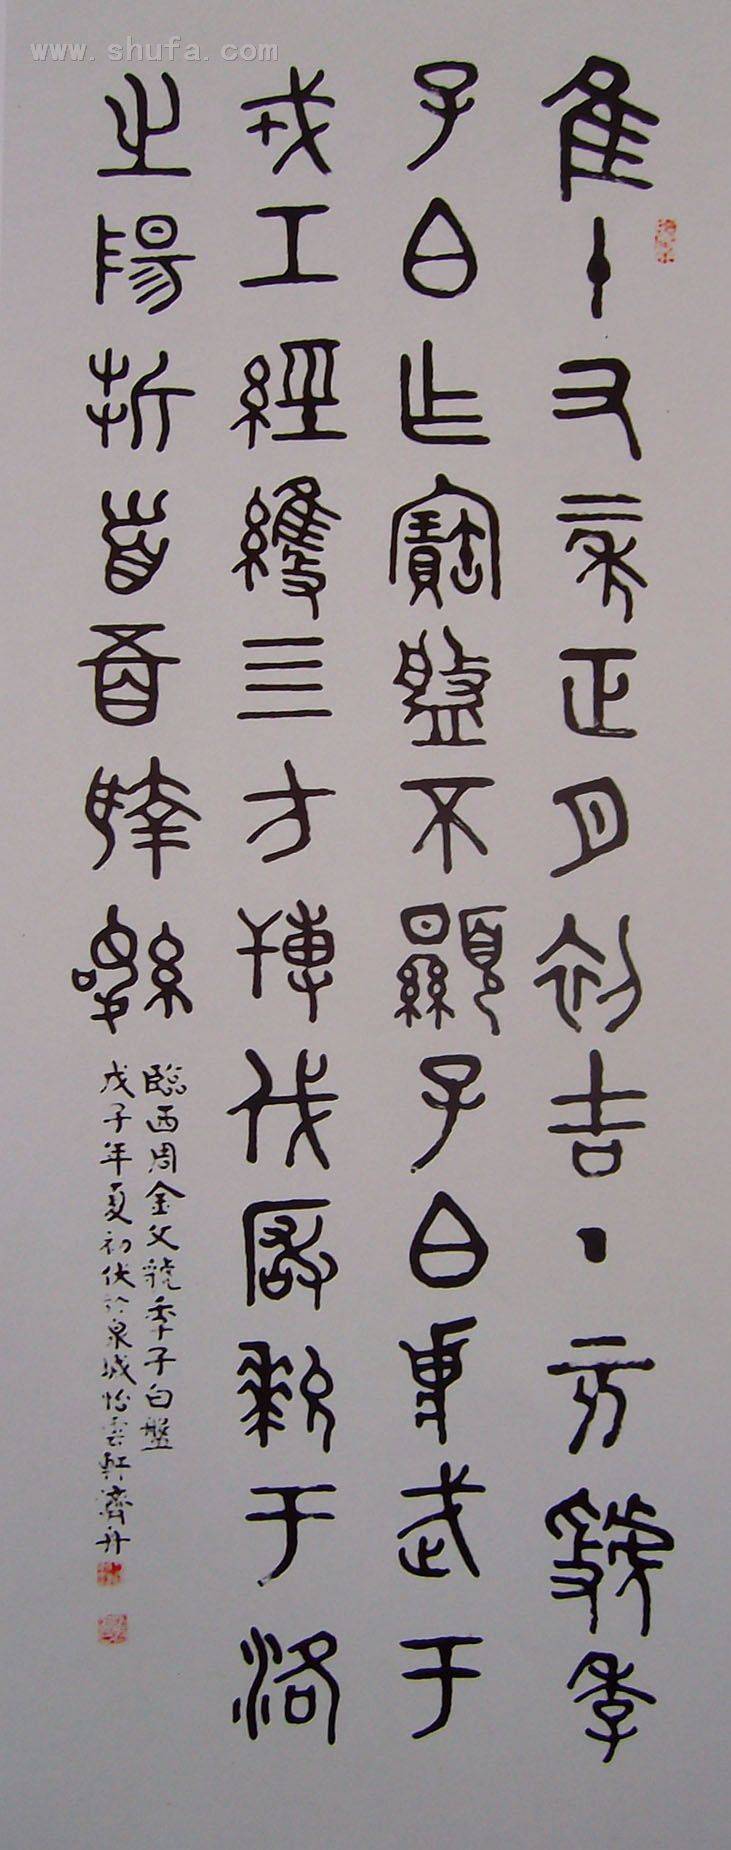 www.shufa.com
隹十又二年正月初吉丁亥虢季
子白乍寶盤不顯子白𤕌武于
戎工經維四方博伐玁狁于洛
之陽折首五百執訊
臨西周金文虢季子白盤
戊子年夏初伏於泉城怡雲軒濟舟